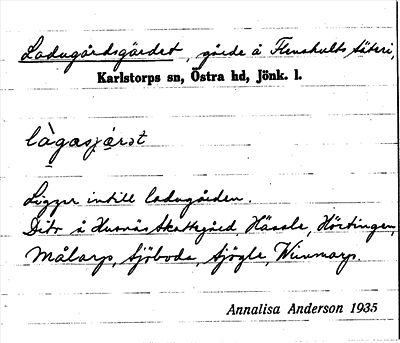 Ladugårdsgärdet, gärde å Flenshults säteri,
Karlstorps sn, Östra hd, Jönk. l.
làgasjärst
Ligger intill ladugården.
Dito å Husnäs Skattegård, Hässle, Hörtingen,
Målarp, Sjöboda, Sjögle, Winnarp.
Annalisa Anderson 1935